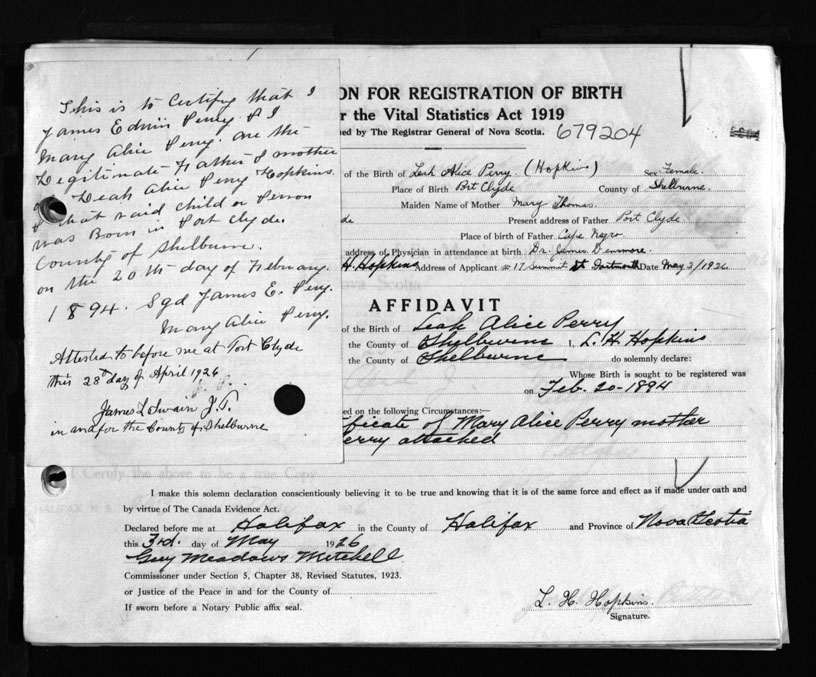 This is to Certify that I
James Edwin Perry & I
Mary Alice Perry. are the
Legitimate Father & mother
Leah Alice Perry Hopkins
& that said child or Person
was Born in Port Clyde
County of Shelburne.
on the 20th day of February.
1894. Sgd James E. Perry.
Mary Alice Perry.
Attested to before me at Port Clyde
this 28th day of April 1926
James L Swain J.P.
in and for the County of Shelburne
ON FOR REGISTRATION OF BIRTH
r the Vital Statistics Act 1919
ued by The Registrar General of Nova Scotia. 679204
of the Birth of Leah Alice Perry (Hopkins) Sex Female.
Place of Birth Port Clyde County of Shelburne.
Maiden Name of Mother Mary Thomas.
de Present address of Father Port Clyde
Place of birth of Father Cape Negro
address of Physician in attendance at birth Dr. James Densmore.
H. Hopkins Address of Applicant #17 Summit St Dartmouth Date May 3/1926.
AFFIDAVIT
of the Birth of Leah Alice Perry
the County of Shelburne I, L. H. Hopkins
the County of Shelburne do solemnly declare:
Whose Birth is sought to be registered was
on Feb. 20-1894
ed on the following Circumstances:—
ificate of Mary Alice Perry mother
Perry attached
I Certify the above to be a true Copy
HALIFAX, N. S.
I make this solemn declaration conscientiously believing it to be true and knowing that it is of the same force and effect as if made under oath and
by virtue of The Canada Evidence Act.
Declared before me at Halifax in the County of Halifax and Province of Nova Scotia
this 3rd. day of May 1926
Guy Meadows Mitchell
Commissioner under Section 5, Chapter 38, Revised Statutes, 1923.
or Justice of the Peace in and for the County of
If sworn before a Notary Public affix seal.
L. H. Hopkins.
Signature.